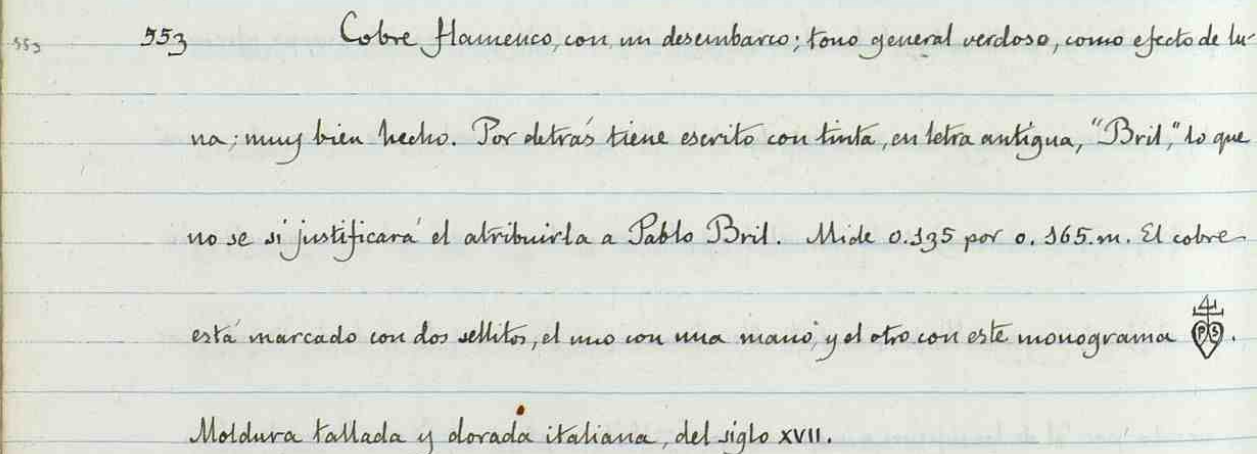 553 553 Cobre flamenco, con un desembarco; tono general verdoso, como efecto de lu-
na; muy bien hecho. Por detrás tiene escrito con tinta, en letra antígua, "Bril," lo que
no se si justificará el atribuirla a Pablo Bril. Mide 0.135 por 0.165.m. El cobre
está marcado con dos sellitos, el uno con una mano, y el otro con este monograma PS.
Moldura tallada y dorada italiana, del siglo XVII.